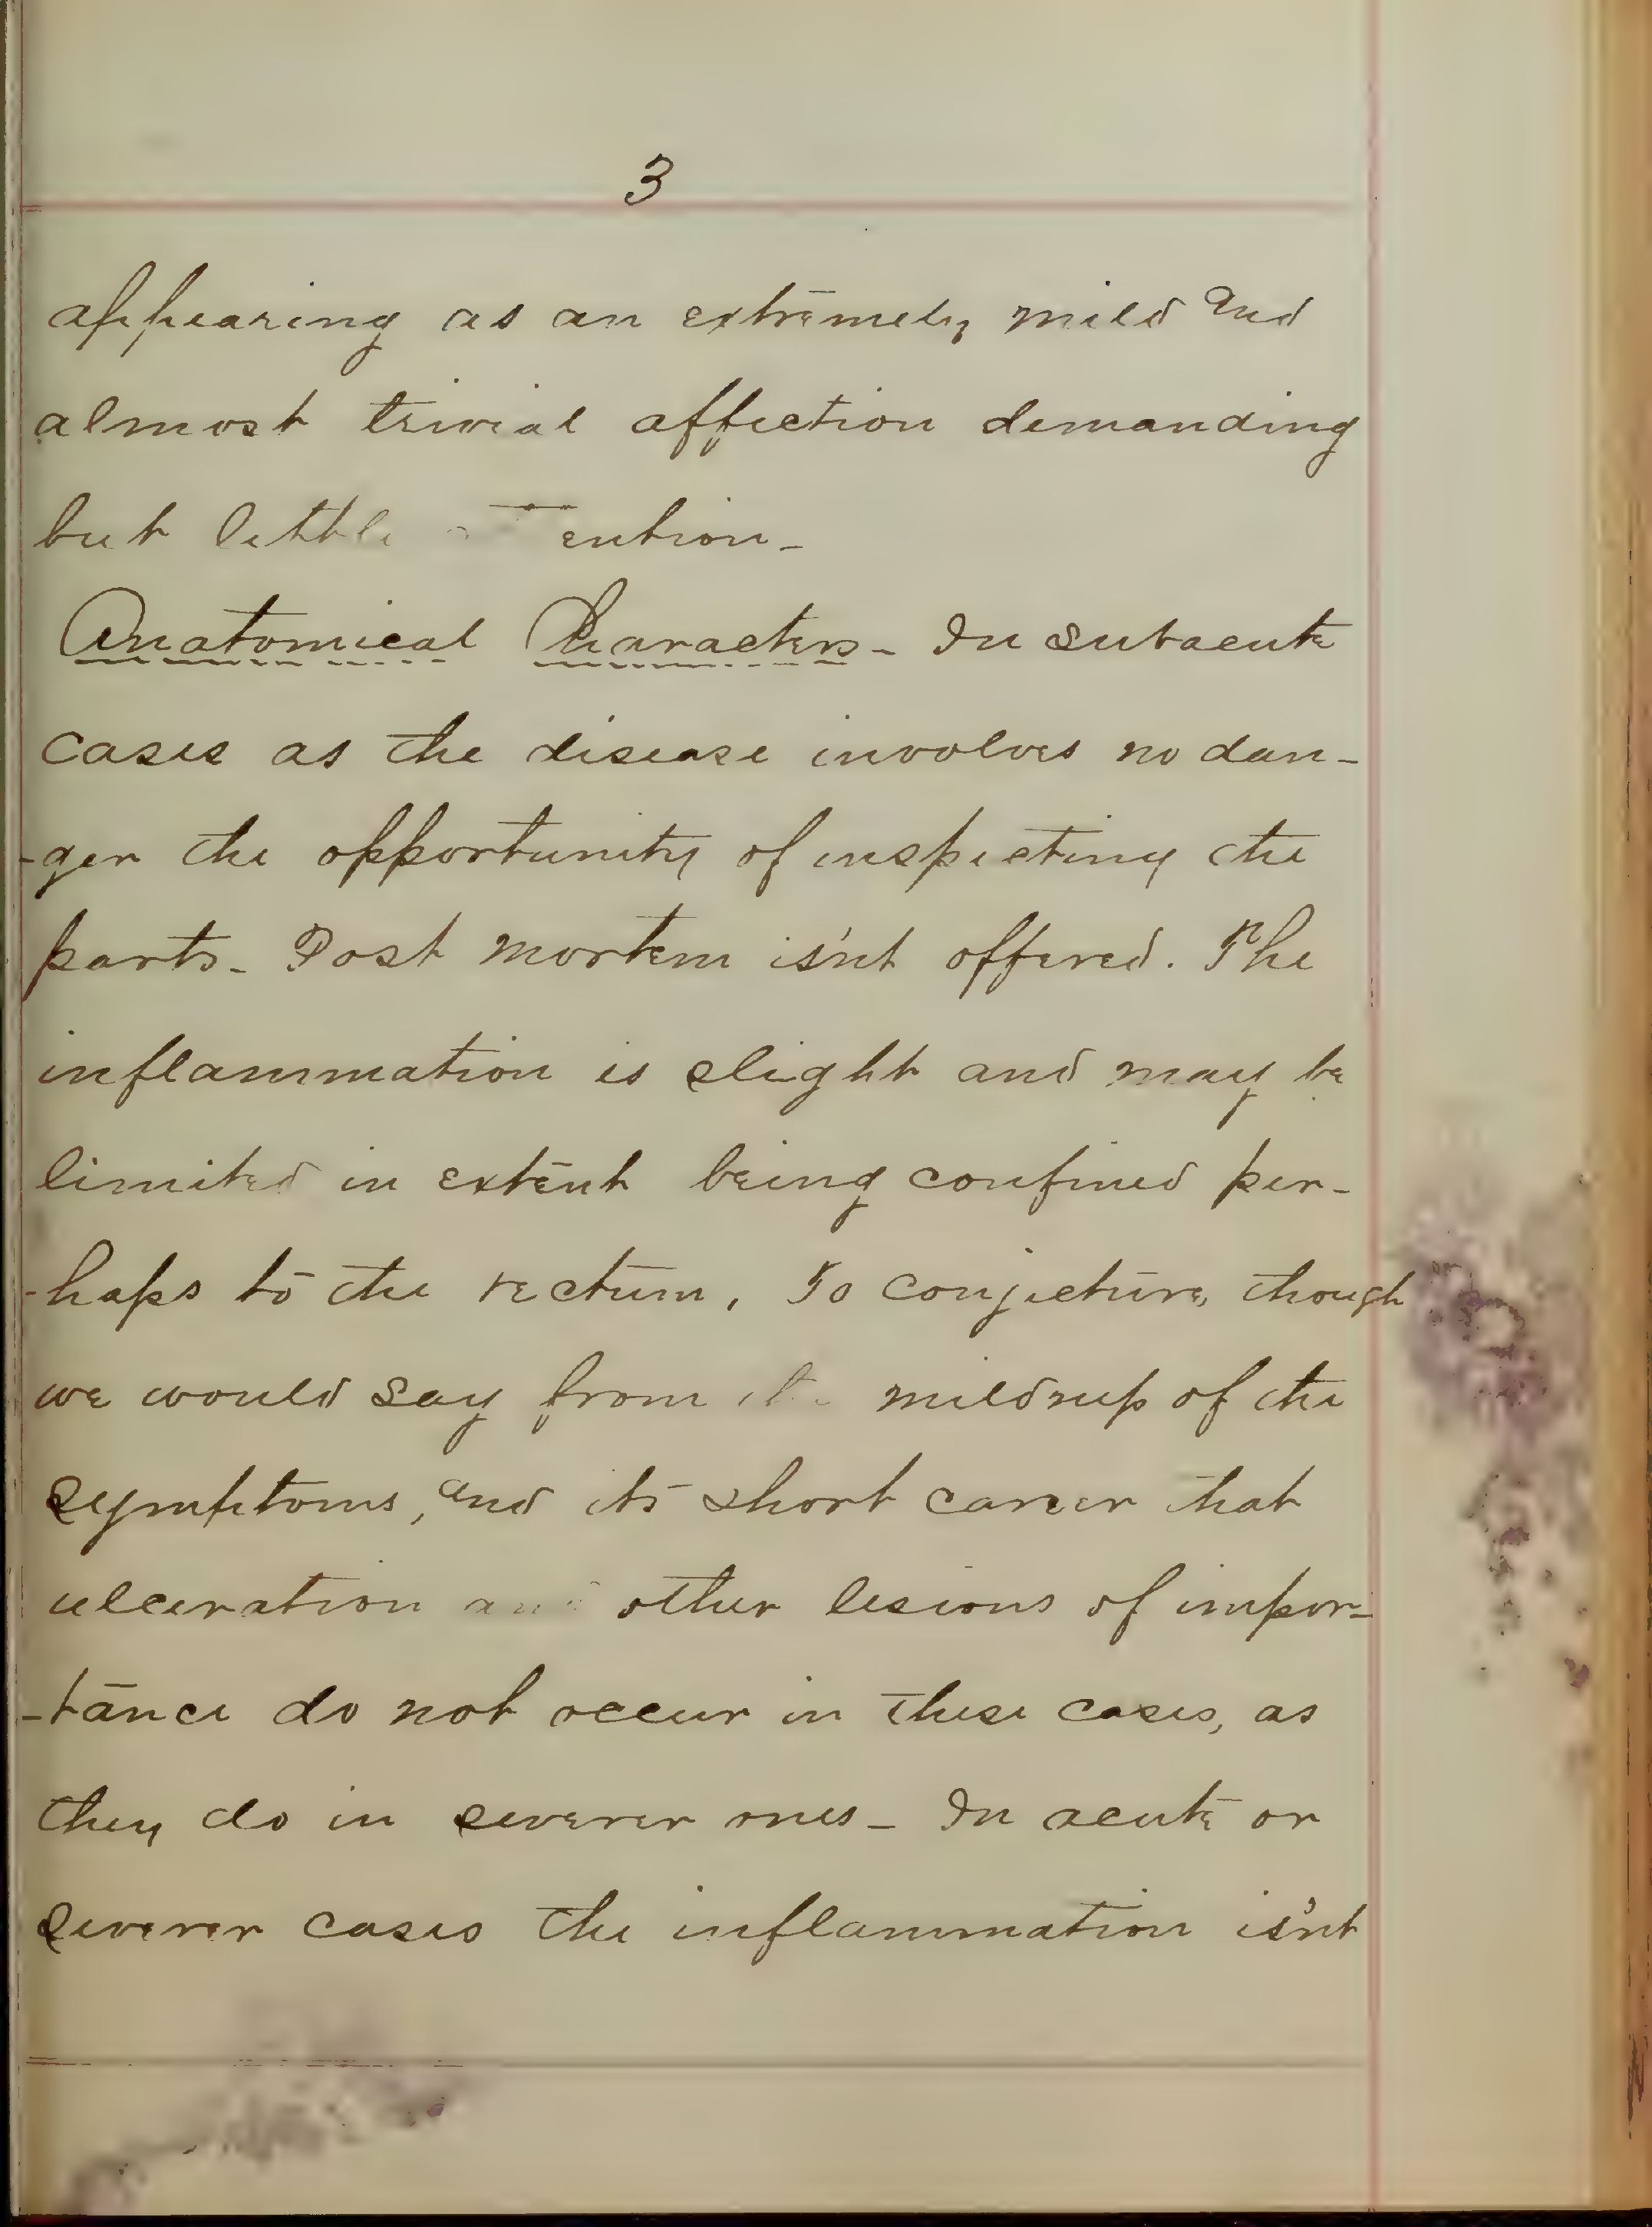 3
appearing as an extremely mild and
almost trivial affection demanding
but little attention_
Anatomical Characters_ In subacute
cases as the disease involves no dan-
-ger the opportunity of inspecting the
parts_ Post mortem is'nt offered. The
inflammation is slight and may be
limited in extent being confined per-
-haps to the rectum, To conjecture, though
we would say from the mildness of the
symptoms, and its short career that
ulceration and other lesions of impor-
-tance do not occur in these cases, as
they do in severer ones_ In acute or
severer cases the inflammation is'nt